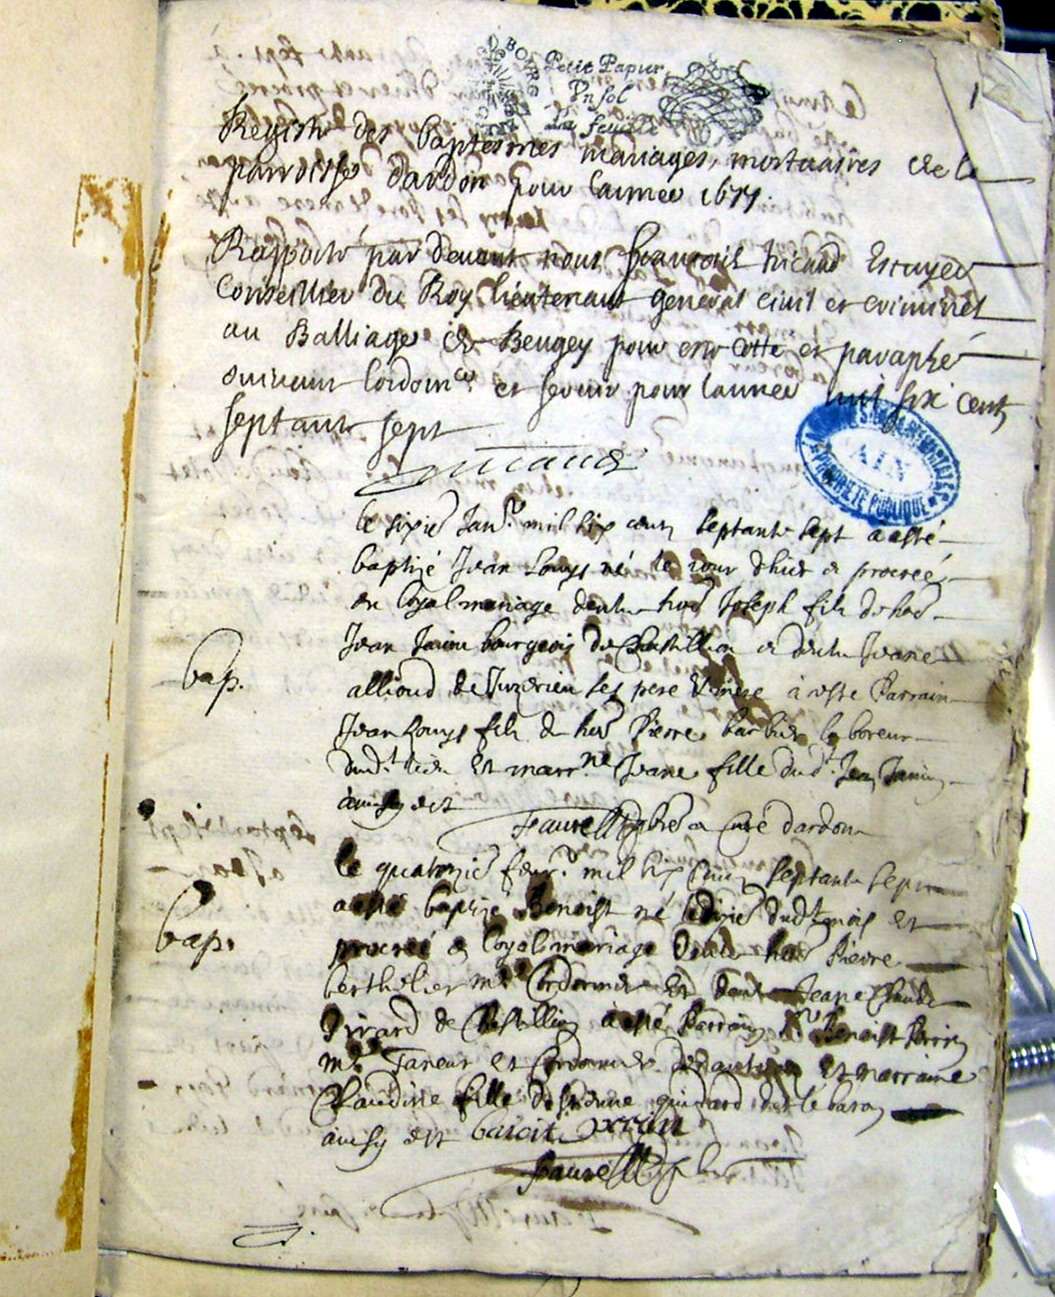 Petit Papier
Un sol
La feuille
1
Registre des baptesmes mariages, mortuaires de la
parroisse dardon pour lannee 1677.
Rapporté par devant nous francois Escuyer
Conseiller du Roy lieutenant general civil et criminel
au Balliage de Beugey pour estre cotté et paraphé
suivant lordonce et servir pour lannee mil six cent
septante sept
ARCHIVES DEPARTEMENTALES
AIN
PROPRIETE PUBLIQUE
le sixie Janr mil six cent septante sept a esté
baptizé Jean Louys né le jour dhier et procreé
en loyal mariage dentre hoe Joseph fils de hoe
Jean bourgeois de Chastillion et dentre Jeane
bap.
allioud de ses pere et mere a este Parrain
Jean Louys fils de hoe Pierre barbier laboreur
dudt lieu Et marrne Jeane fille dudt Jean
ainsy est
faure pbre et Curé dardon
le quatorzie feur mil six cent septante sept
a esté baptizé Benoist né le dixie dudt mois et
bap.
procreé en loyal mariage dentre hoe Pierre
berthelier me Cordonnier Et dentre Jeane Claude
Girard de Chastillion a esté Parrain Benoist Perrin
me Taneur et Cordonnier de nantua Et marraine
Claudine fille de guinard dit le baron
ainsy est benoit perrin
faure